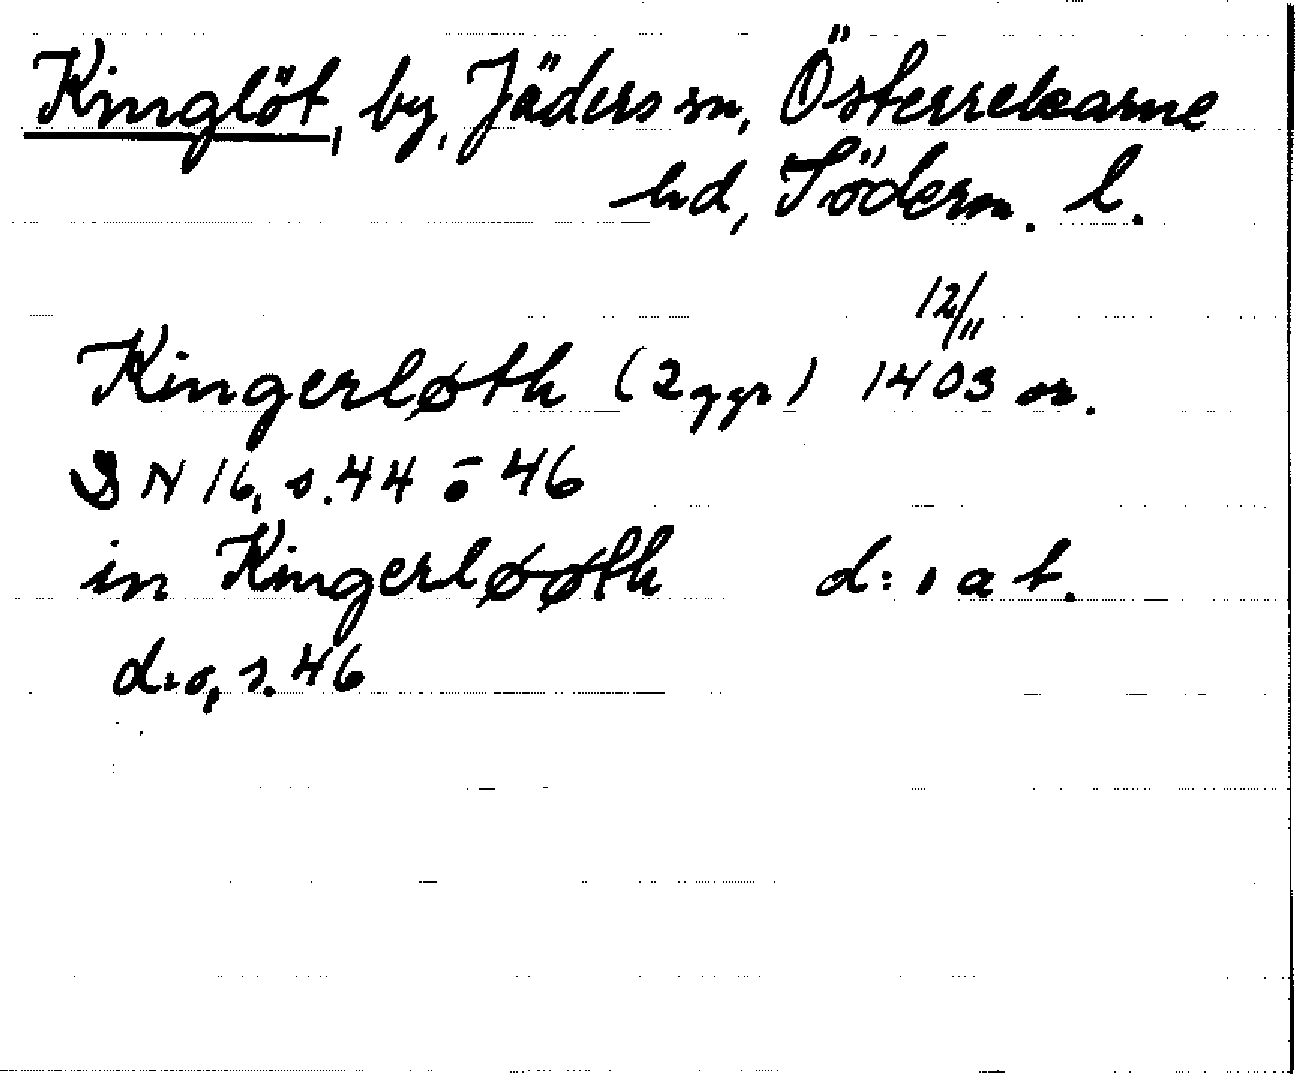 Kinglöt, by, Jäders sn, Österrekarne
hd, Söderm. l.
Kingerløth (2 ggr) 12/11 1403 or.
SN 16, s. 44 o 46
in Kingerløøth d:o at.
d:o, s. 46